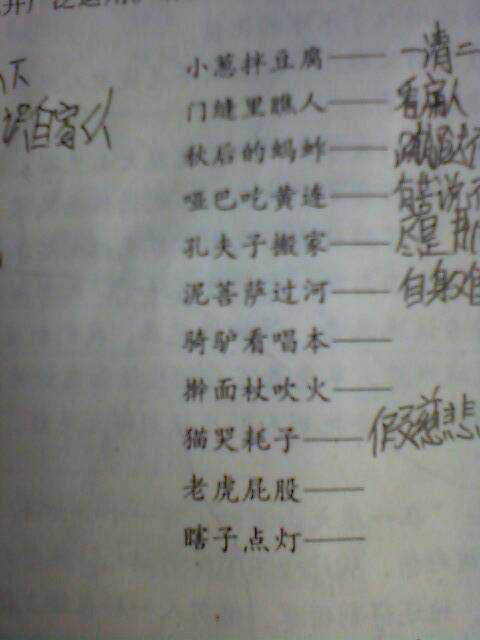 小葱拌豆腐——一清二
门缝里瞧人——看扁人
秋后的蚂蚱——
哑巴吃黄连——有苦说不
孔夫子搬家——尽是
泥菩萨过河——自身难
骑驴看唱本——
擀面杖吹火——
猫哭耗子——假慈悲
老虎屁股——
瞎子点灯——